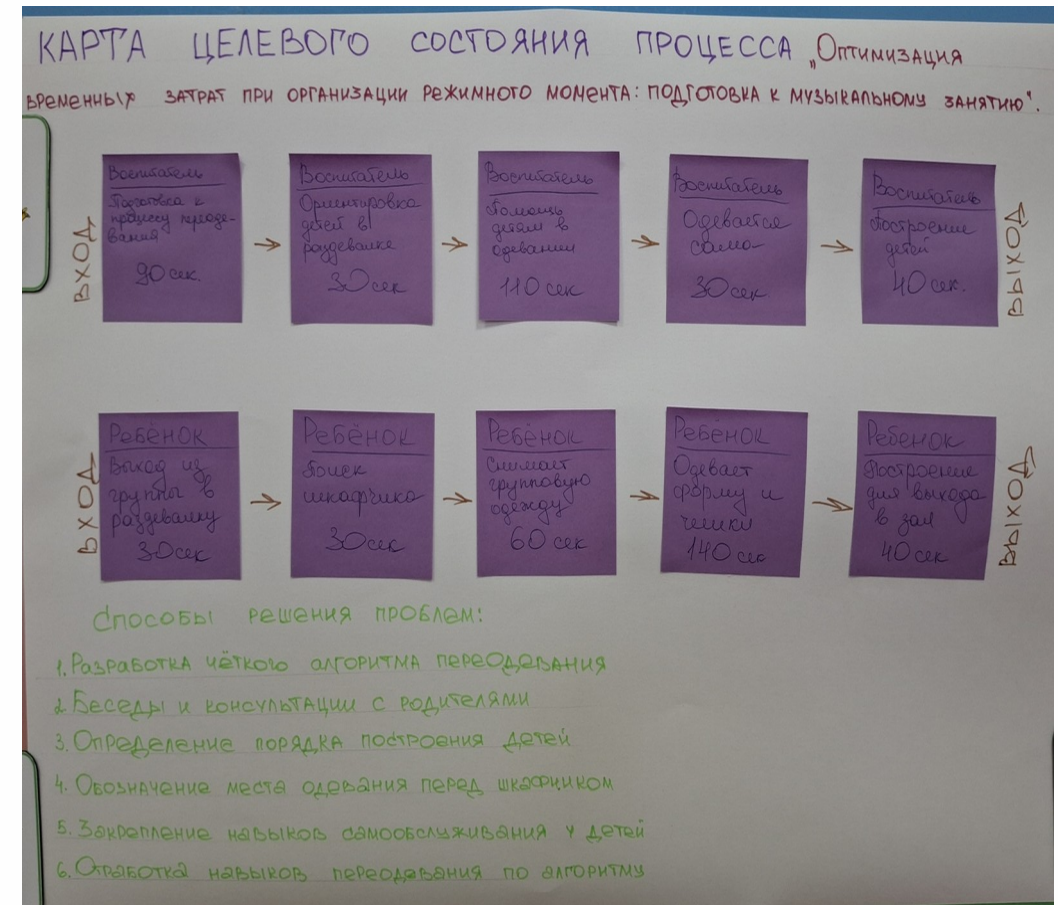 КАРТА ЦЕЛЕВОГО СОСТОЯНИЯ ПРОЦЕССА „Оптимизация
временных затрат при организации режимного момента: подготовка к музыкальному занятию".
ВХОД
Воспитатель
Подготовка к
процессу переоде-
вания
90 сек.
Воспитатель
Ориентировка
детей в
раздевалке
30 сек
Воспитатель
Помощь
детям в
одевании
110 сек
Воспитатель
Одевается
сама
30 сек.
Воспитатель
Построение
детей
40 сек.
ВЫХОД
ВХОД
Ребёнок
Выход из
группы в
раздевалку
30 сек
Ребёнок
Поиск
шкафчика
30 сек
Ребёнок
Снимает
групповую
одежду
60 сек
Ребёнок
Одевает
форму и
чешки
140 сек
Ребенок
Построение
для выхода
в зал
40 сек
ВЫХОД
Способы решения проблем:
1. Разработка чёткого алгоритма переодевания
2. Беседы и консультации с родителями
3. Определение порядка построения детей
4. Обозначение места одевания перед шкафчиком
5. Закрепление навыков самообслуживания у детей
6. Отработка навыков переодевания по алгоритму